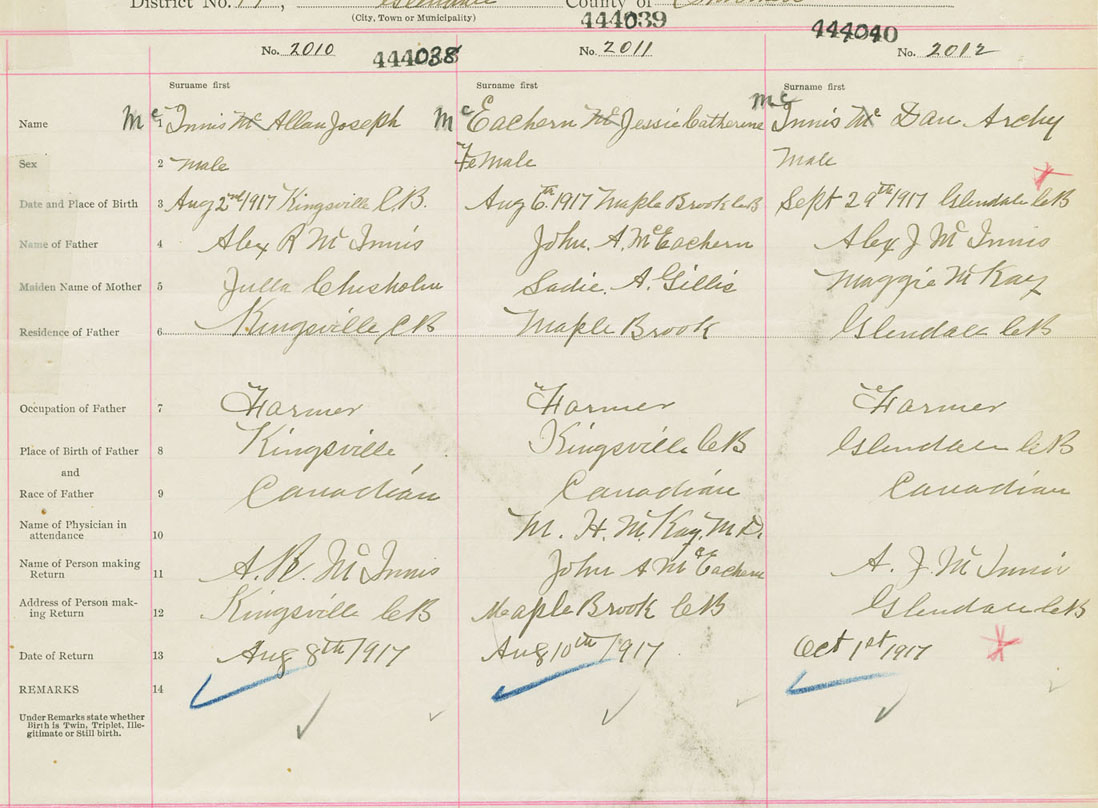 District No. 11, Glendale County of
(City, Town or Municipality)
444039
No. 2010 444038 No. 2011 444040 No. 2012
Surname first Surname first Surname first
Name 1 Mc Innis Mc Allan Joseph Mc Eachern Mc Jessie Catherene Mc Innis Mc Dan Archy
Sex 2 Male FeMale Male
Date and Place of Birth 3 Aug 2nd 1917 Kingsville C.B. Aug 6th. 1917 Maple Brook C.B Sept 29th 1917 Glendale C.B
Name of Father 4 Alex R Mc Innis John. A. Mc Eachern Alex J Mc Innis
Maiden Name of Mother 5 Julla Chisholm Sadie. A. Gillis Maggie Mc Kay
Residence of Father 6 Kingsville C.B Maple Brook Glendale C.B
Occupation of Father 7 Farmer Farmer Farmer
Place of Birth of Father 8 Kingsville Kingsville C.B Glendale C.B
and
Race of Father 9 Canadian Canadian Canadian
Name of Physician in
attendance 10 M. H. Mc Kay, M.D.
Name of Person making
Return 11 A. R. Mc Innis John A Mc Eachern A. J. Mc Innis
Address of Person mak-
ing Return 12 Kingsville C.B Maple Brook C.B Glendale C.B
Date of Return 13 Aug 8th/1917 Aug 10th/1917 Oct 1st 1917
REMARKS 14
Under Remarks state whether
Birth is Twin, Triplet, Ille-
gitimate or Still birth.